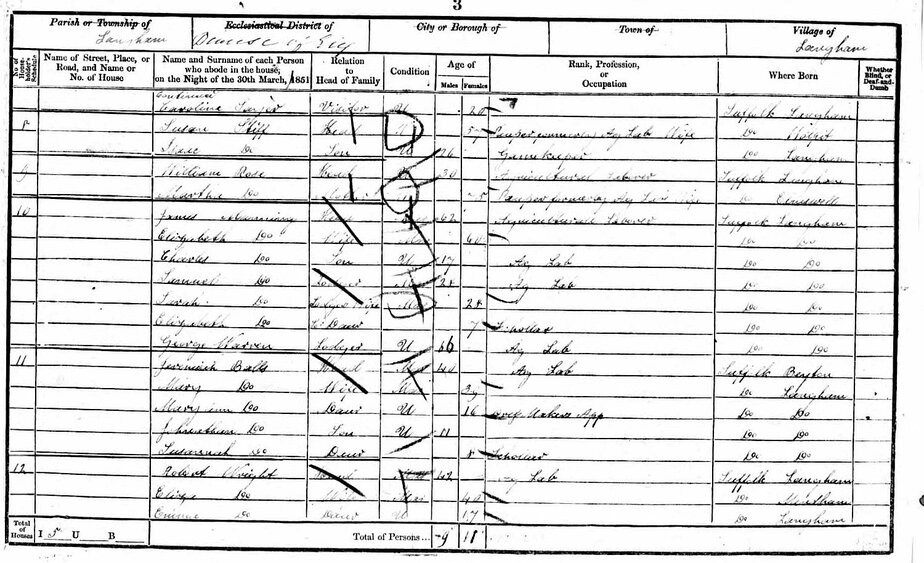 3
Parish or Township of Langham
Ecclesiastical District of Diocese of Ely
City or Borough of
Town of
Village of Langham
No. of House-holder's Schedule
Name of Street, Place, or Road, and Name or No. of House
Name and Surname of each Person who abode in the house, on the Night of the 30th March, 1851
Relation to Head of Family
Condition
Age of
Males Females
Rank, Profession, or Occupation
Where Born
Whether Blind, or Deaf-and-Dumb
continued
Caroline Visitor U 20 Suffolk Langham
8 Susan Stiff Head 57 Ag Lab Wife Do
Isaac Do Son U 26 Gamekeeper Do Langham
9 William Rose Head 30 Agricultural Laborer Suffolk Langham
Martha Do 75 Do
10 James 62 Agricultural Laborer Suffolk Langham
Elizabeth Do Wife 60 Do Do
Charles Do Son U 17 Ag Lab Do Do
Samuel Do Lodger 24 Ag Lab Do Do
Sarah Do Lodgers Wife Mar 24 Do Do
Elizabeth Do Daur 7 Scholar Do Do
George Warren Lodger U 66 Ag Lab Do Do
11 Jeremiah Balls Head 40 Ag Lab Suffolk Beyton
Mary Do Wife Mar 39 Do Langham
Mary Ann Do Daur U 16 App Do Do
Johnathan Do Son U 11 Do Do
Susannah Do Daur 8 Scholar Do Do
12 Robert Wright Head 42 Ag Lab Suffolk Langham
Eliza Do Wife Mar 40 Do
Emma Do Daur U 17 Do Langham
Total of Houses
I 5 U B
Total of Persons 9 11